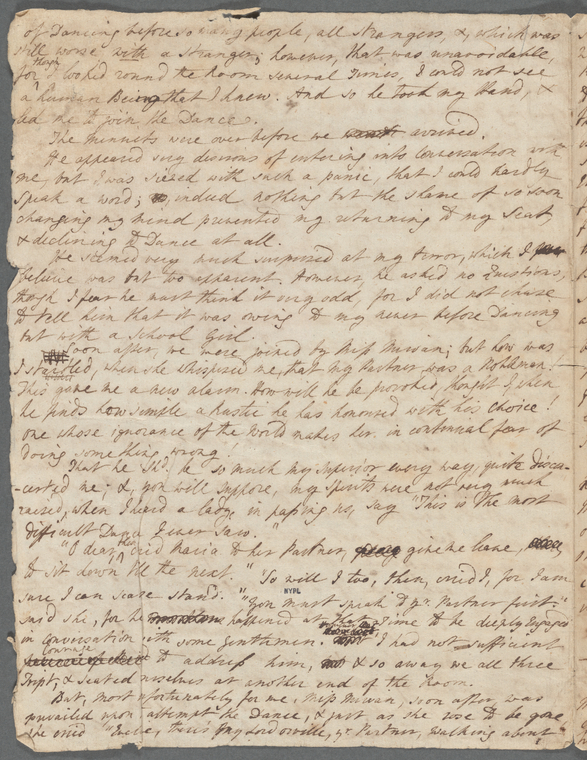 of Dancing before so many people, all Strangers, &, which was
still worse with a Stranger; however, that was unavoidable,
for though I looked round the Room several Times, I could not see
a human Being that I knew. And so he took my Hand, &
led me to join the Dance.
The minuets were over before we arrived.
He appeared very desirous of entering into Conversation with
me, but I was seized with such a panic, that I could hardly
speak a word; indeed nothing but the shame of so soon
changing my mind prevented my returning to my Seat,
& declining to Dance at all.
He seemed very much surprised at my terror, which I
believe was but too apparent. However, he asked no Questions,
though I fear he must think it very odd, for I did not chuse
to tell him that it was owing to my never before Dancing
but with a School Girl.
Soon after, we were joined by Miss Mirvan; but how was
I startled, when she whispered me, that my Partner was a Nobleman!
This gave me a new alarm. How will he be provoked, thought I, when
he finds how simple a rustic he has honoured with his choice!
one whose ignorance of the World makes her in continual fear of
doing something wrong!
That he shd. be so much my superior every way, quite discon-
-certed me; &, you will suppose, my spirits were not very much
raised, when I heard a lady, in passing us, say "This is the most
difficult Dance I ever saw."
"O dear, then, cried Maria to her Partner, give me leave,
to sit down 'till the next." "So will I too, then, cried I, for I am
sure I can scarce stand." "You must speak to yr. Partner first"
said she, for he happened at the Time to be deeply Engaged
in Conversation with some Gentlemen. I had not sufficient
Courage to address him, & so away we all three
Tript, & seated ourselves at another end of the Room.
But, most unfortunately for me, Miss Mirvan, soon after, was
prevailed upon attempt the Dance, & just as she rose to be gone,
she cried " there is my Lord Orville, yr. Partner, walking about
NYPL